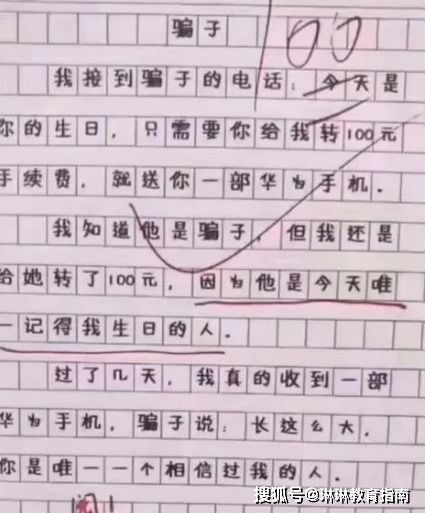 骗子
我接到骗子的电话：今天是
你的生日，只需要你给我转100元
手续费，就送你一部华为手机.
我知道他是骗子，但我还是
给她转了100元，因为他是今天唯
一记得我生日的人.
过了几天，我真的收到一部
华为手机，骗子说：长这么大.
你是唯一一个相信过我的人.
搜狐号@琳琳教育指南